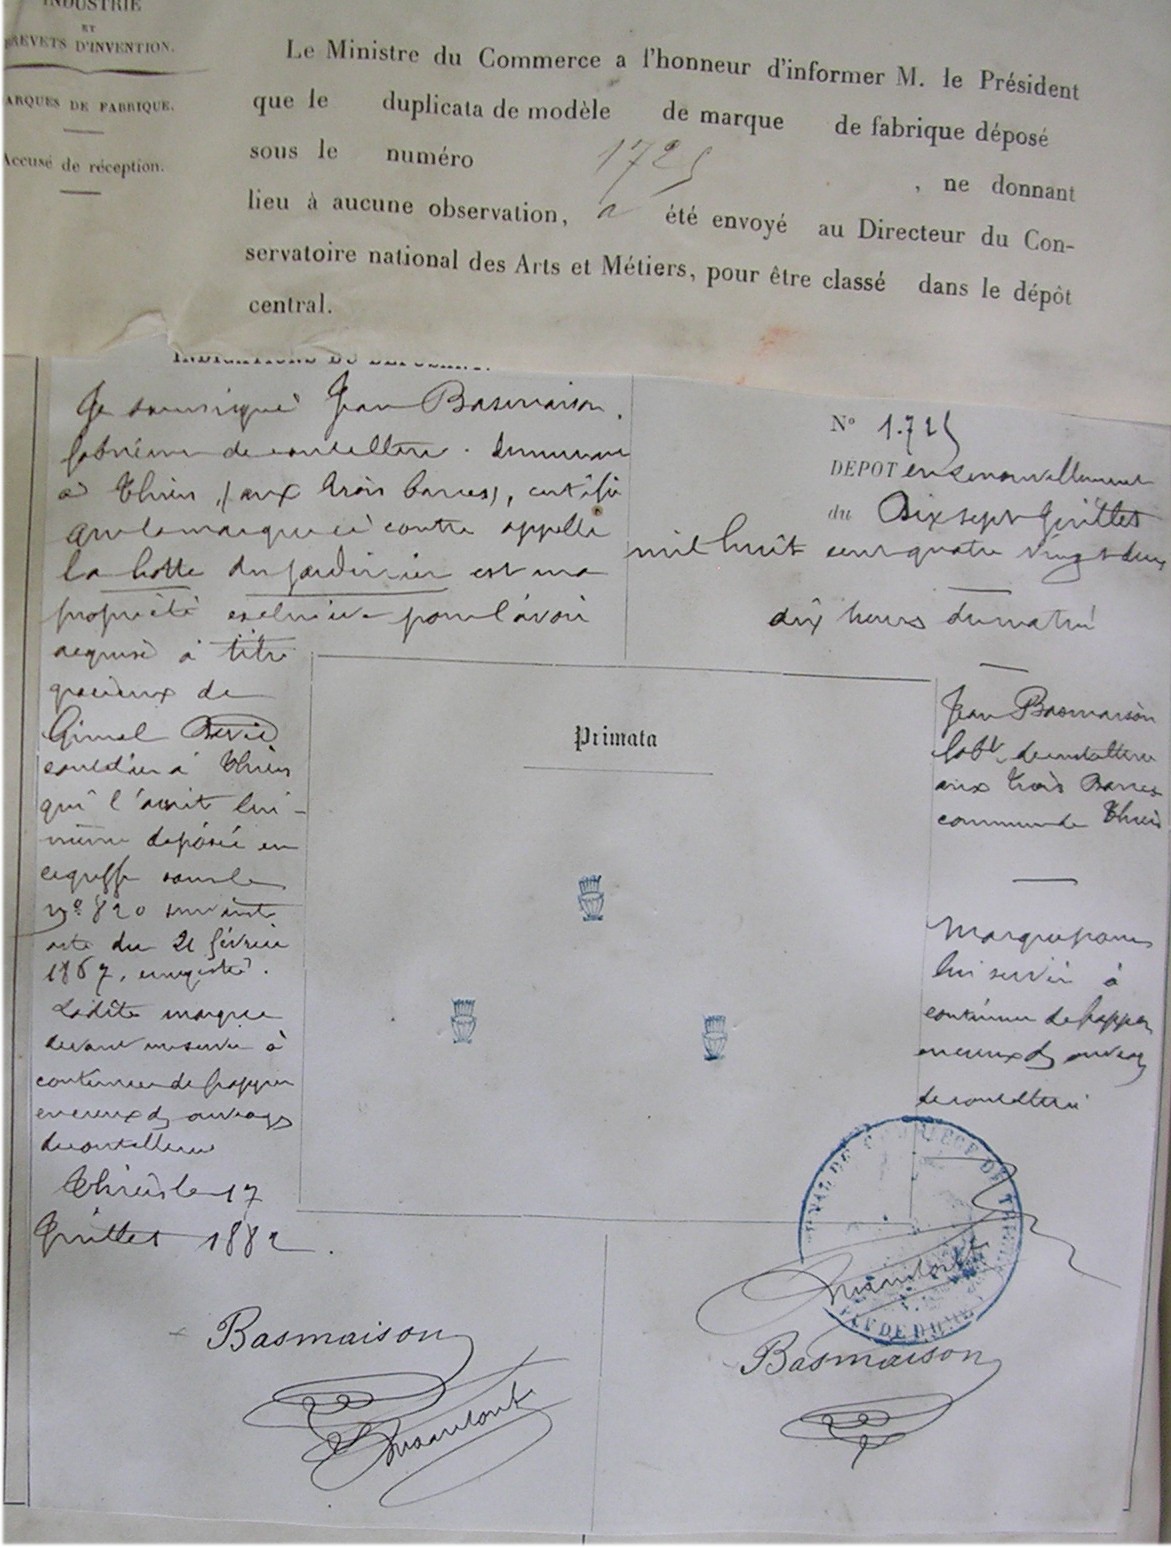 INDUSTRIE
ET
BREVETS D'INVENTION.
MARQUES DE FABRIQUE.
Accusé de réception.
Le Ministre du Commerce a l'honneur d'informer M. le Président
que le duplicata de modèle de marque de fabrique déposé
sous le numéro 1725, ne donnant
lieu à aucune observation, a été envoyé au Directeur du Con-
servatoire national des Arts et Métiers, pour être classé dans le dépôt
central.
INDICATIONS DU DÉPOSANT.
Je soussigné Jean Basmaison.
fabricant de coutellerie. demeurant
à Thiers, (aux trois barres), certifie
que la marque ci contre appellé
la hotte du jardinier est ma
propriété exclusive pour l'avoir
acquise à titre
gracieux de
Gimel
coutelier à Thiers
qui l'avait lui-
même déposée en
ce greffe sous le
No 820 suivant
acte du 21 février
1867, enregistré.
Ladite marque
devant me servir à
continuer de frapper
en creux des ouvrages
de coutellerie
Thiers le 17
Juillet 1882.
Basmaison
No 1.725
DÉPOT en renouvellement
du Dix sept Juillet
mil huit cent quatre vingt deux
dix heures du matin
Primata
Jean Basmaison
fabt de coutellerie
aux trois Barres
commune de Thiers
Marque pour
lui servir à
continuer de frapper
en creux des ouvrages
de coutellerie
TRIBUNAL DE COMMERCE DE THIERS
PUY DE DOME
Basmaison